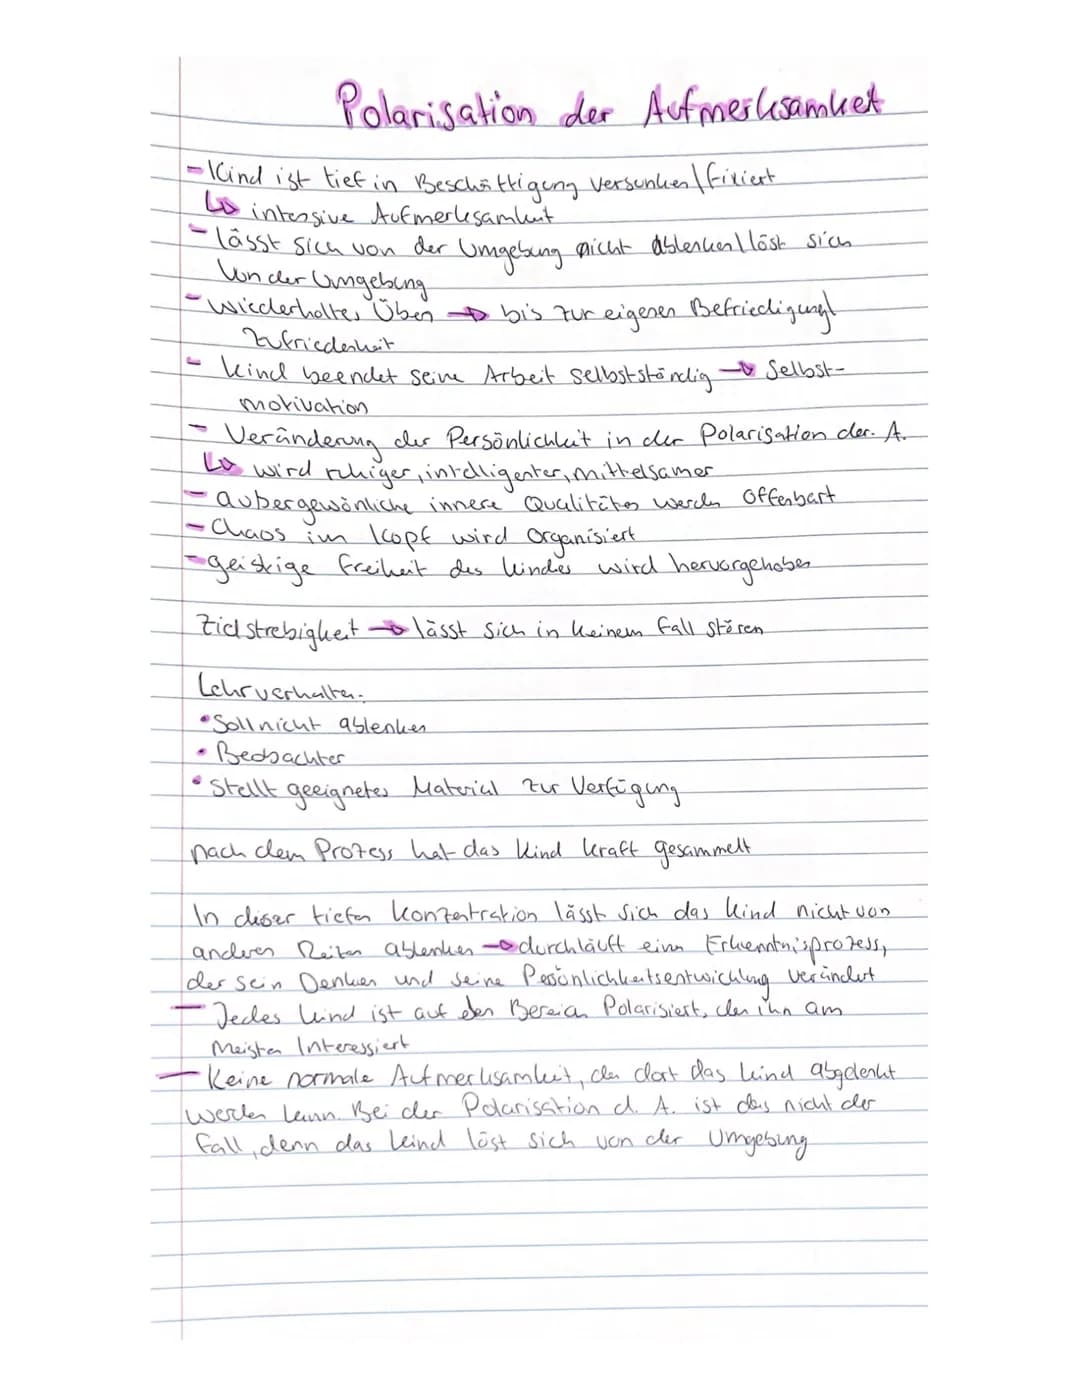 Polarisation der Aufmerksamkeit
- Kind ist tief in Beschäftigung versunken/fixiert
↳ intensive Aufmerksamkeit
- lässt sich von der Umgebung nicht ablenken/löst sich
von der Umgebung
- wiederholtes Üben → bis zur eigenen Befriedigung/
Zufriedenheit
- Kind beendet seine Arbeit selbstständig → Selbst-
motivation
- Veränderung der Persönlichkeit in der Polarisation der. A.
↳ wird ruhiger, intelligenter, mittelsamer
- außergewönliche innere Qualitäten werden Offenbart
- Chaos im Kopf wird Organisiert
- geistige Freiheit des Kindes wird hervorgehoben
Zielstrebigkeit → lässt sich in keinem Fall stören
Lehrverhalten:
• Soll nicht ablenken
• Beobachter
• Stellt geeignetes Material zur Verfügung
nach dem Prozess hat das Kind kraft gesammelt
In dieser tiefen Konzentration lässt sich das Kind nicht von
anderen Reizen ablenken → durchläuft einen Erkenntnisprozess,
der sein Denken und seine Persönlichkeitsentwicklung verändert
- Jedes Kind ist auf den Bereich Polarisiert, der ihn am
Meisten Interessiert
- Keine normale Aufmerksamkeit, da dort das Kind abgelenkt
werden kann. Bei der Polarisation d. A. ist das nicht der
Fall, denn das Kind löst sich von der Umgebung